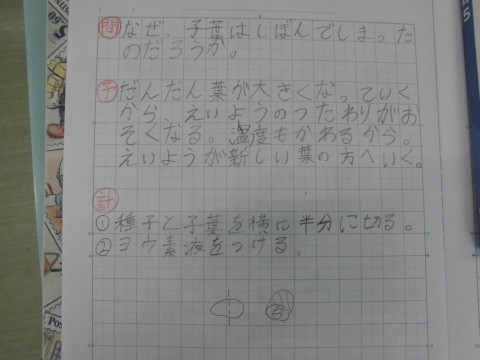 問 なぜ、子葉はしぼんでしまった
のだろうか。
予 だんだん葉が大きくなっていく
から、えいようのつたわりがお
そくなる。温度もかあるから。
えいようが新しい葉の方へいく。
計
①種子と子葉を横に半分に切る。
②ヨウ素液をつける。